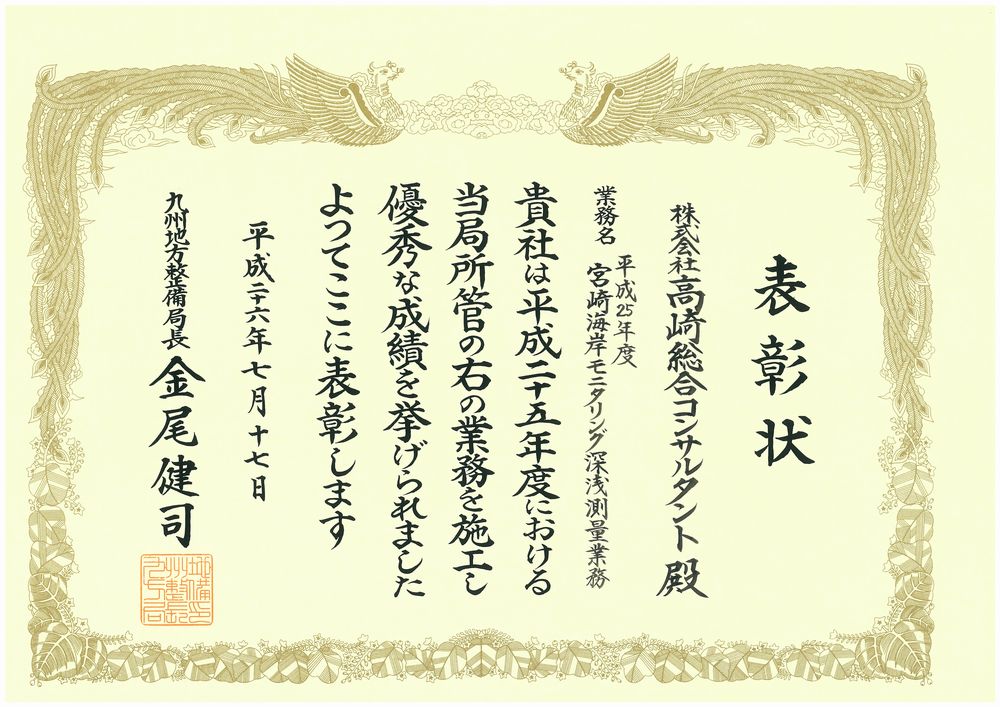 表彰状
株式会社高崎総合コンサルタント殿
業務名 平成25年度
宮崎海岸モニタリング深浅測量業務
貴社は平成二十五年度における
当局所管の右の業務を施工し
優秀な成績を挙げられました
よってここに表彰します
平成二十六年七月十七日
九州地方整備局長 金尾健司